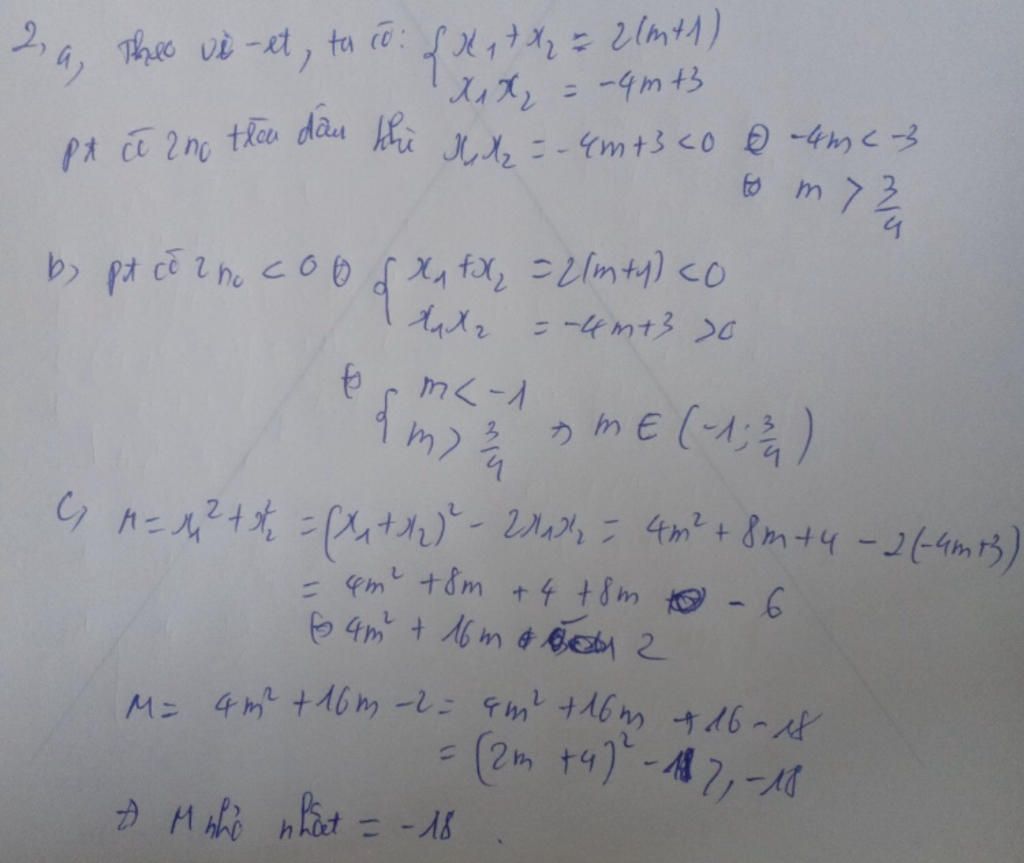 2, a, Theo vi-et, ta có: { x₁ + x₂ = 2(m+1)
x₁x₂ = -4m+3
pt có 2 n₀ trái dấu khi x₁x₂ = -4m+3 < 0 ⇔ -4m < -3
⇔ m > 3/4
b) pt có 2 n₀ < 0 ⇔ { x₁ + x₂ = 2(m+1) < 0
x₁x₂ = -4m+3 > 0
⇔ { m < -1
m > 3/4 → m ∈ (-1; 3/4)
c, M = x₁² + x₂² = (x₁ + x₂)² - 2x₁x₂ = 4m² + 8m + 4 - 2(-4m+3)
= 4m² + 8m + 4 + 8m - 6
⇔ 4m² + 16m 2
M = 4m² + 16m - 2 = 4m² + 16m + 16 - 18
= (2m + 4)² - 18 ≥ -18
⇒ M nhỏ nhất = -18.